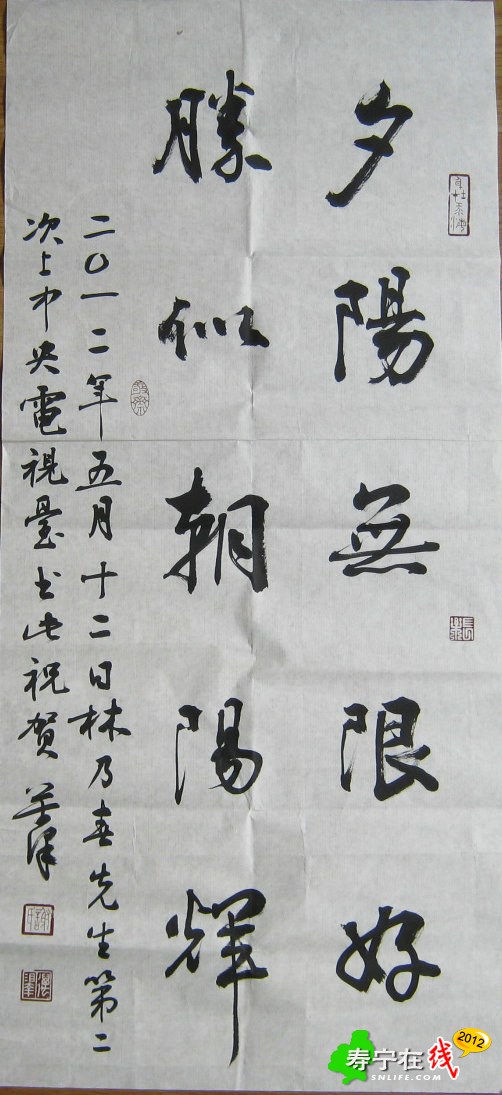 夕陽無限好
勝似朝陽輝
二〇一二年五月十二日林乃春先生第二
次上中央電視臺书此祝贺
寿宁在线
2012
SNLIFE.COM